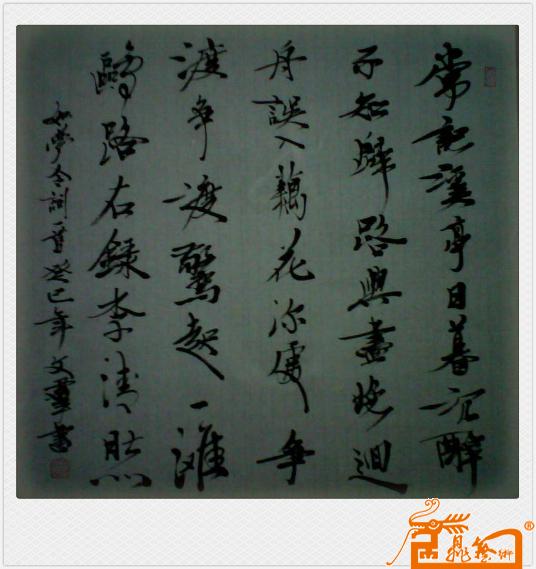 常記溪亭日暮沉醉
不知歸路興盡晚迴
舟誤入藕花深處爭
渡爭渡驚起一灘
鷗路右錄李清照
如夢令詞一首癸巳年文書